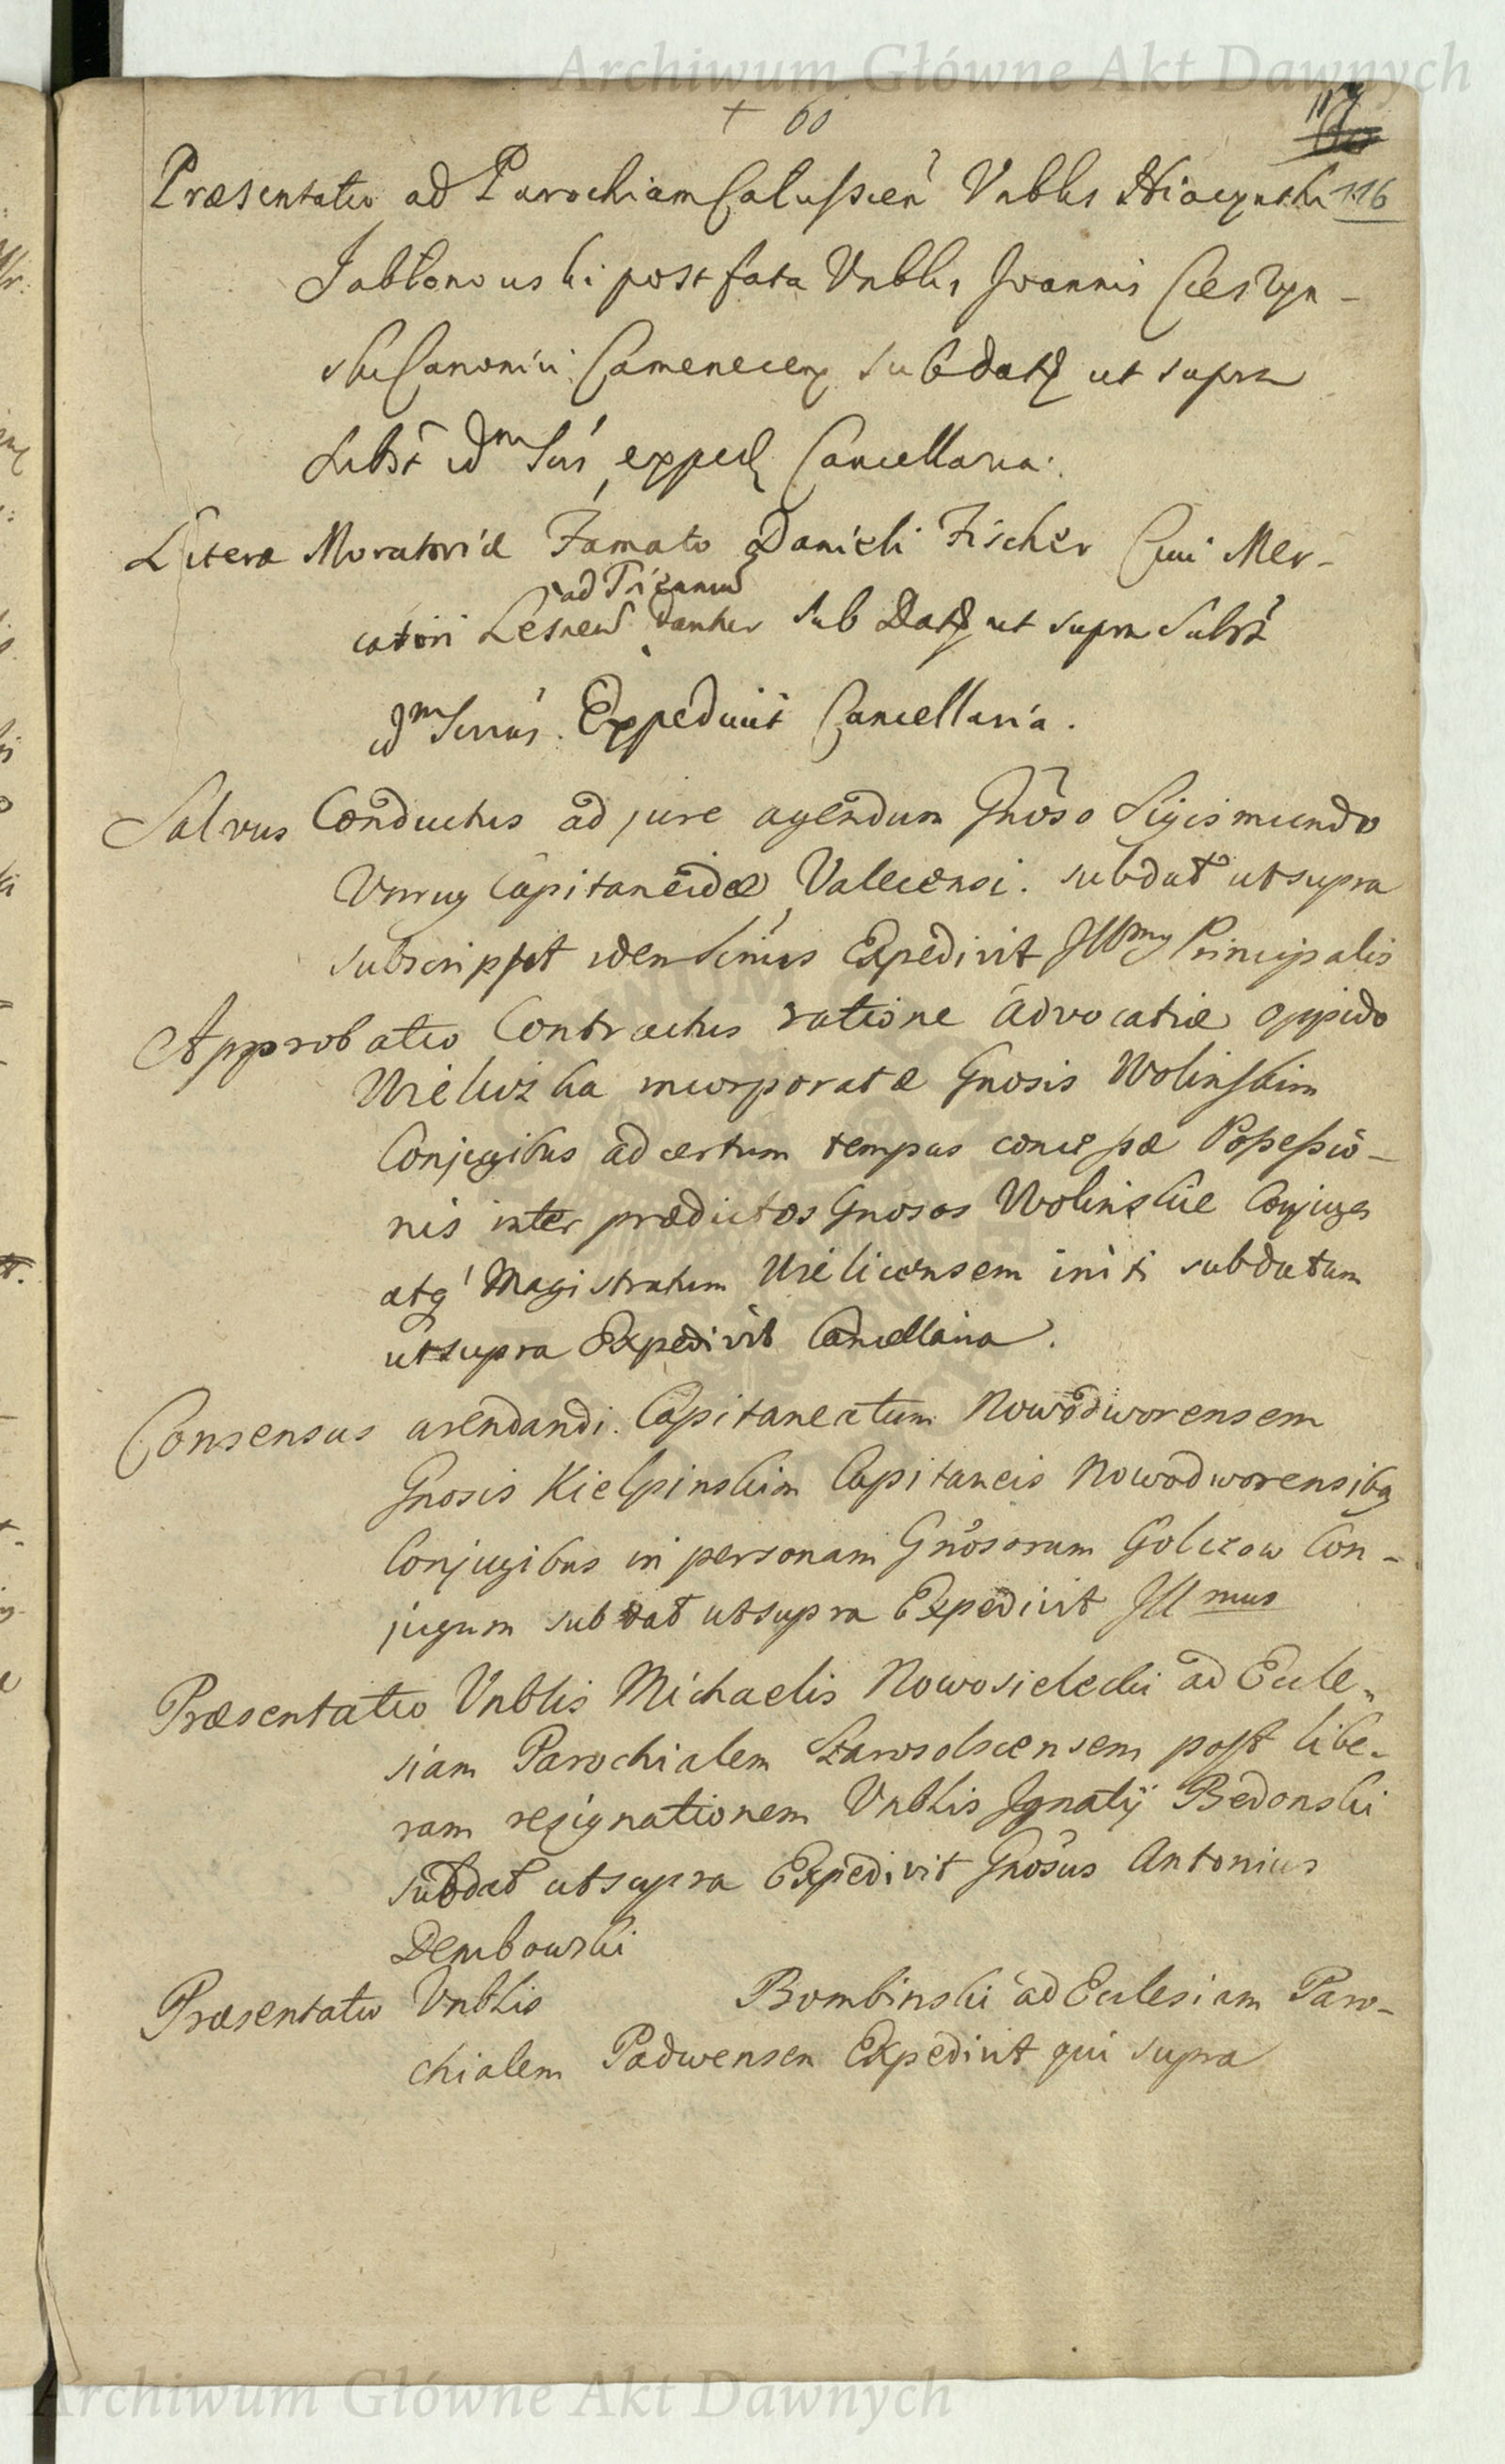 Archiwum Główne Akt Dawnych
+ 60
117
Præsentatio ad Parochiam Calussien Vnblis Hiacynthi 116
Jabłonouski post fata Vnblis Joannis Cieszyn-
ski Canonici Camenecen sub dat ut supra
Subst idm Sers exped Cancellaria.
Literæ Moratoriæ Famato Danieli Fischer Civi Mer-
ad Triennium
catori Lesnen dantur sub Dat ut supra Subst
idm Sernus. Expedivit Cancellaria.
Salvus Conductus ad jure agendum Gnoso Sigismundo
Unrug Capitaneidæ Valecensi. sub dat ut supra
subscripsit idem Serimus Expedivit Jllmus Principalis
Approbatio Contractus ratione advocatiæ oppido
Wieliczka incorporatæ Gnosis Wolinskim
Conjugibus ad certum tempus concessæ Possessio-
nis inter prædictos Gnosos Wolinskie Conjuges
atq Magistratum Wielicensem initi sub datum
ut supra Expedivit Cancellaria.
Consensus arendandi Capitaneatum Nowodworensem
Gnosis Kielpinskim Capitaneis Nowodworensibq
Conjugibus in personam Gnosorum Golczow Con-
jugum sub dat ut supra Expedivit Jllmus
Præsentatio Vnblis Michaelis Nowosielecki ad Eccle-
siam Parochialem Starosolscensem post libe-
ram resignationem Vnblis Jgnatij Bedonski
sub dat ut supra Expedivit Gnosus Antonius
Dembowski
Præsentatio Vnblis Bombinski ad Ecclesiam Paro-
chialem Padwensem Expedivit qui supra
Archiwum Główne Akt Dawnych